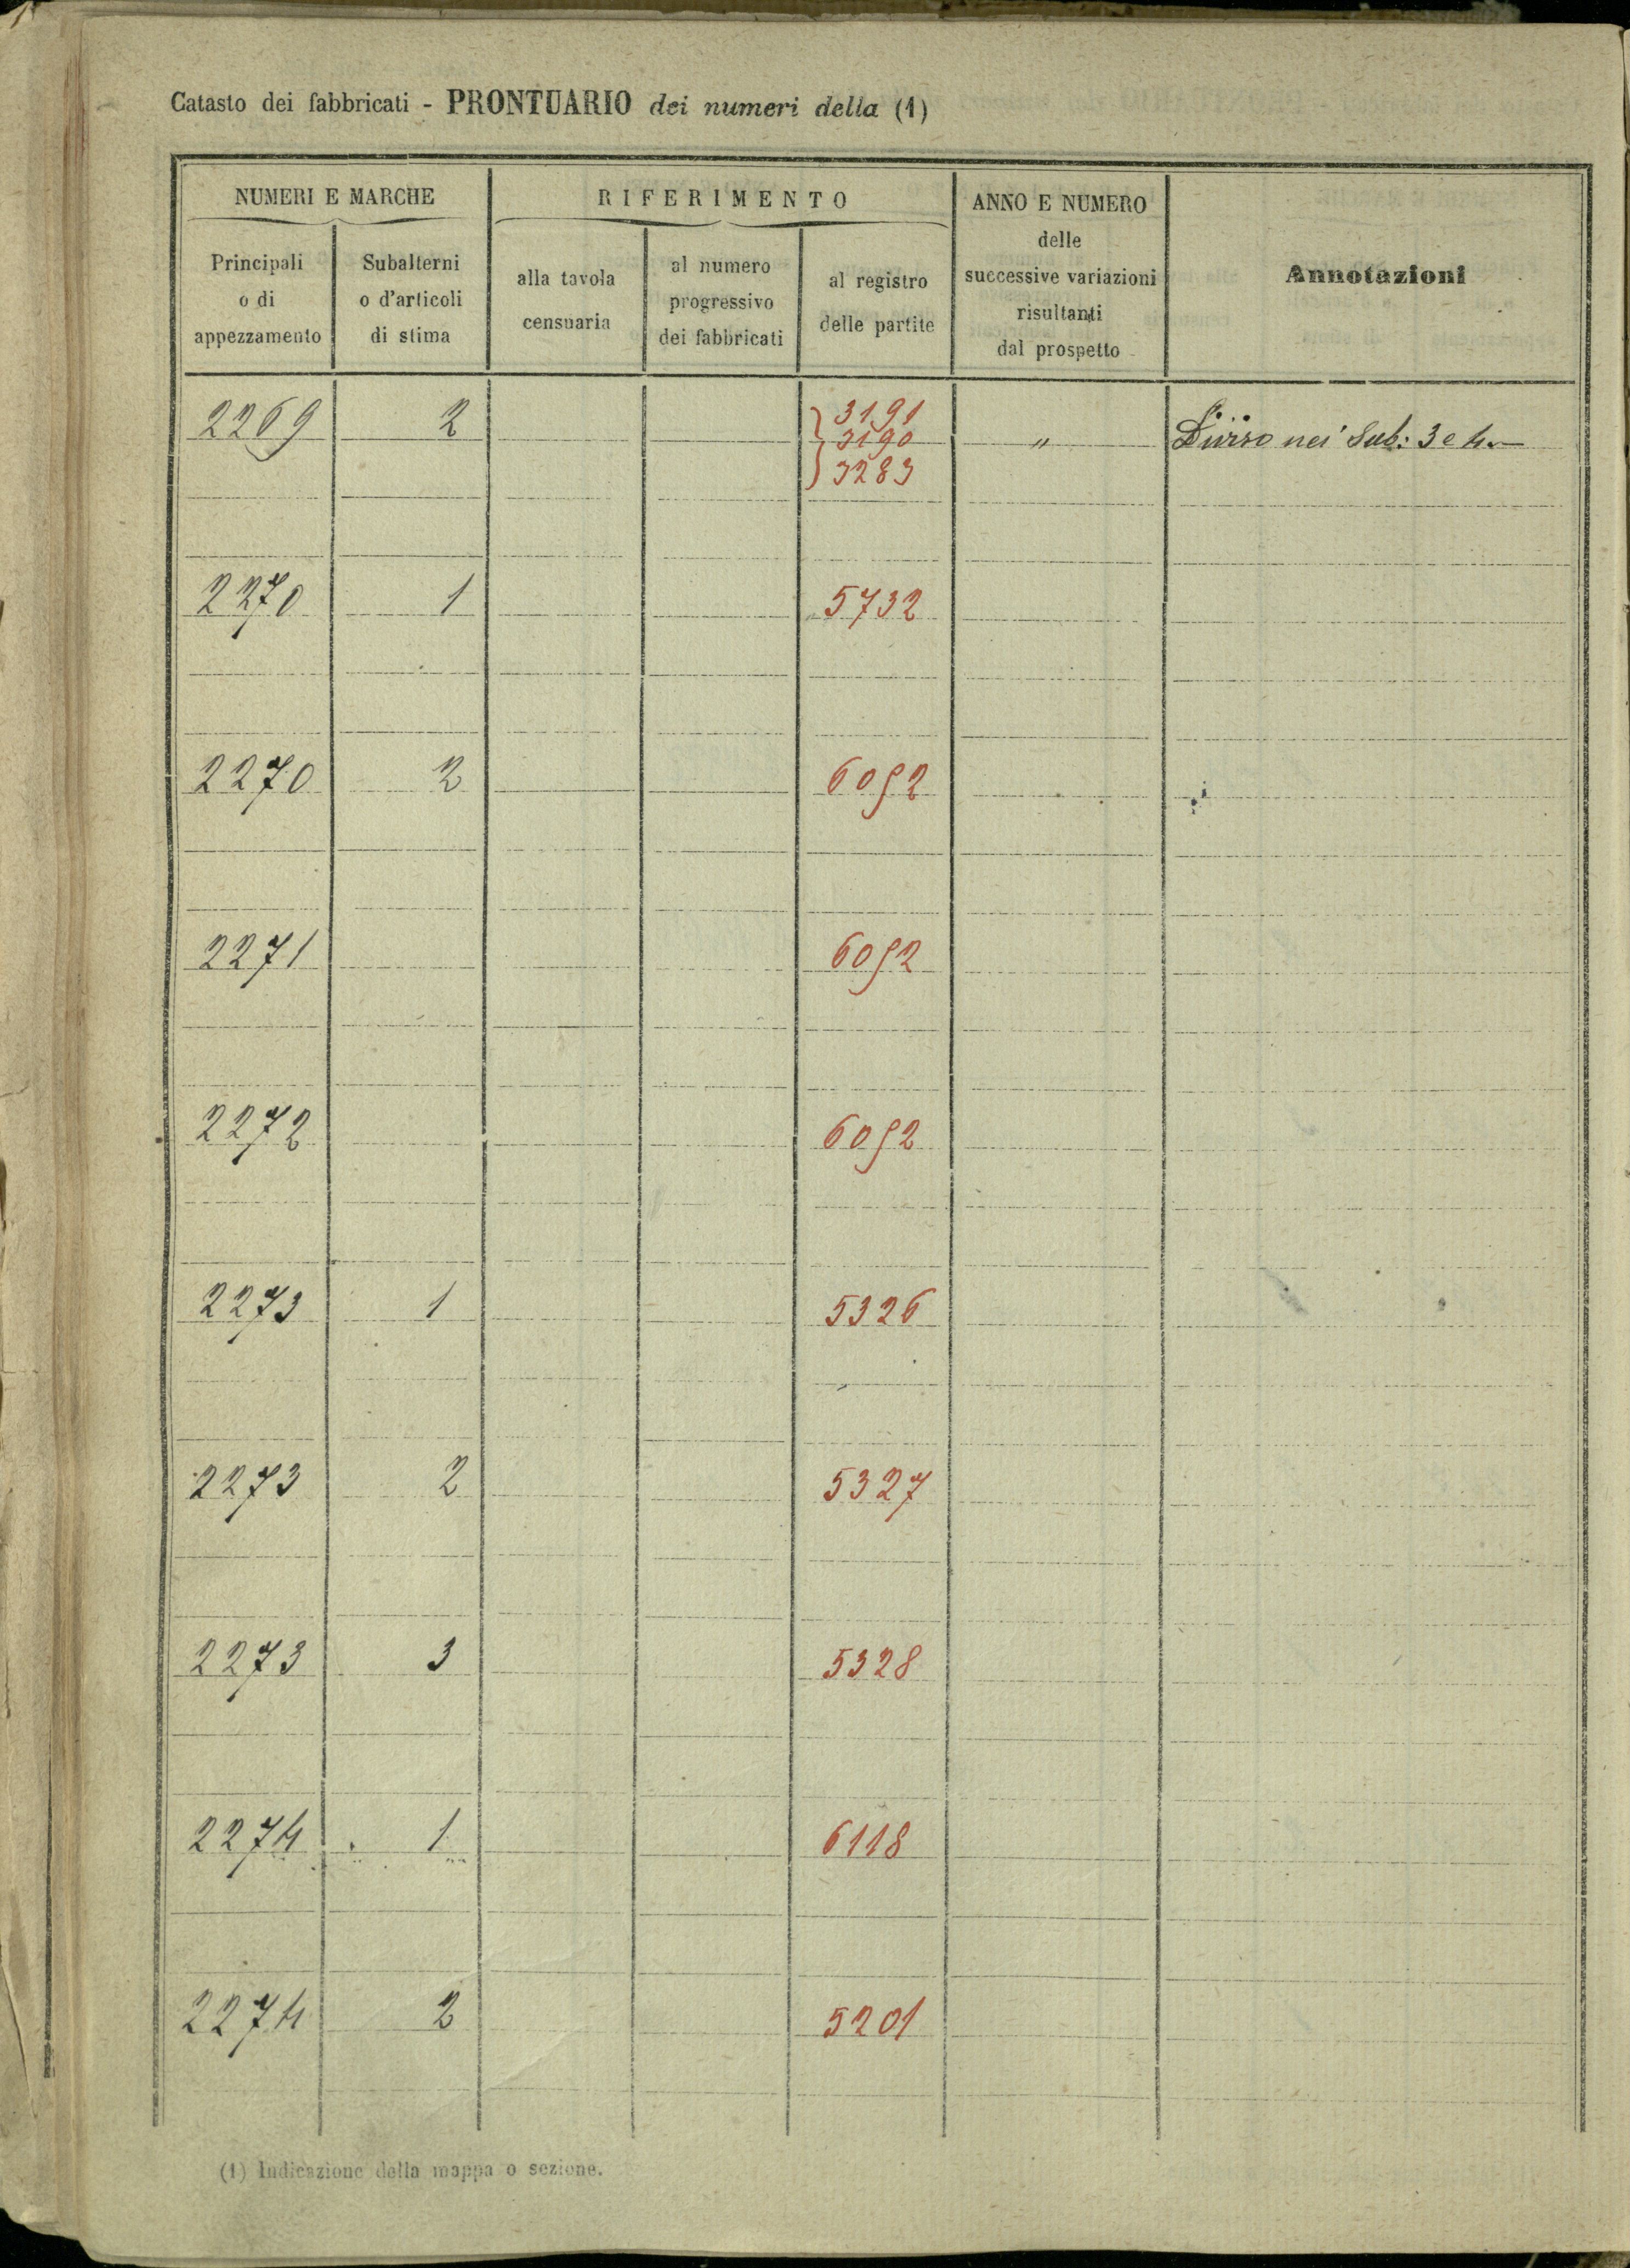 Catasto dei fabbricati - PRONTUARIO dei numeri della (1)
NUMERI E MARCHE
RIFERIMENTO
ANNO E NUMERO
delle
successive variazioni
risultanti
dal prospetto
Annotazioni
Principali
o di
appezzamento
Subalterni
o d'articoli
di stima
alla tavola
censuaria
al numero
progressivo
dei fabbricati
al registro
delle partite
3191
2269 2 3190 " Diviso nei Sub: 3 e 4
3283
2270 1 5732
2270 2 6092
2271 6092
2272 6092
2273 1 5326
2273 2 5327
2273 3 5328
2274 1 6118
2274 2 5201
(1) Indicazione della mappa o sezione.